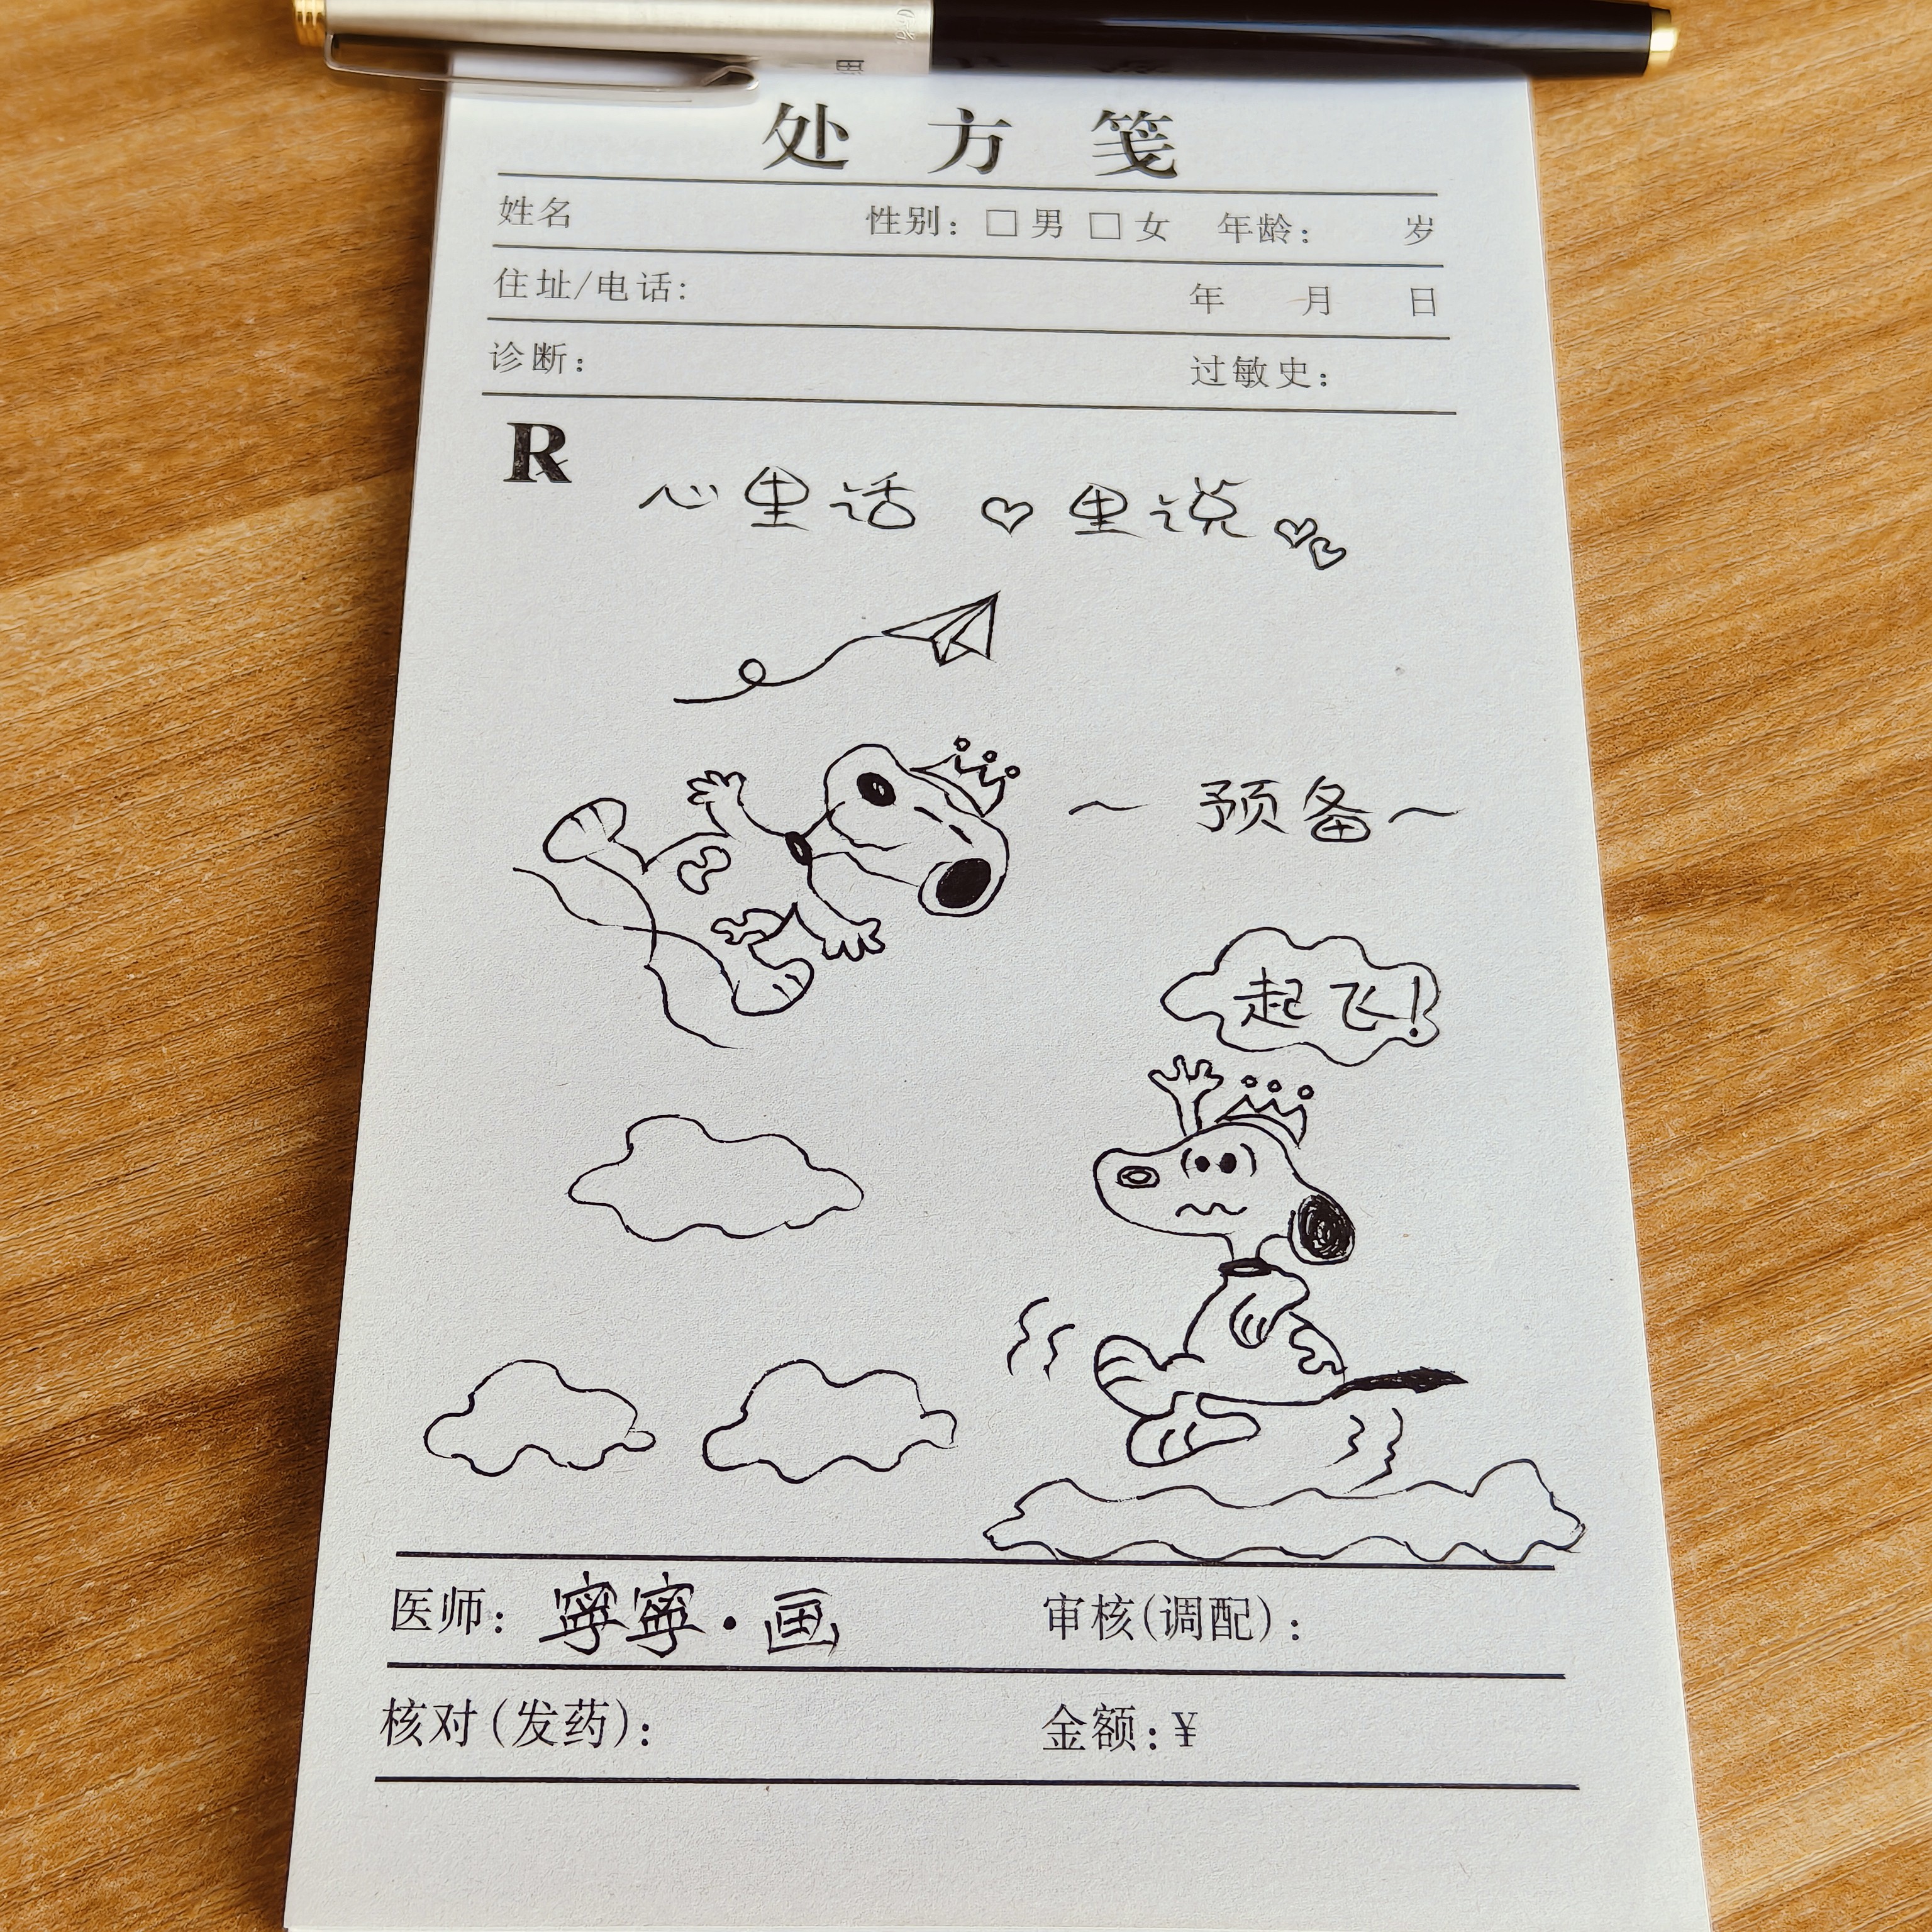 处方笺
姓名 性别：□男 □女 年龄： 岁
住址/电话： 年 月 日
诊断： 过敏史：
R
心里话 ♡里说♡♡
～ 预备～
起飞！
医师：寧寧·画 审核(调配)：
核对(发药)： 金额：¥